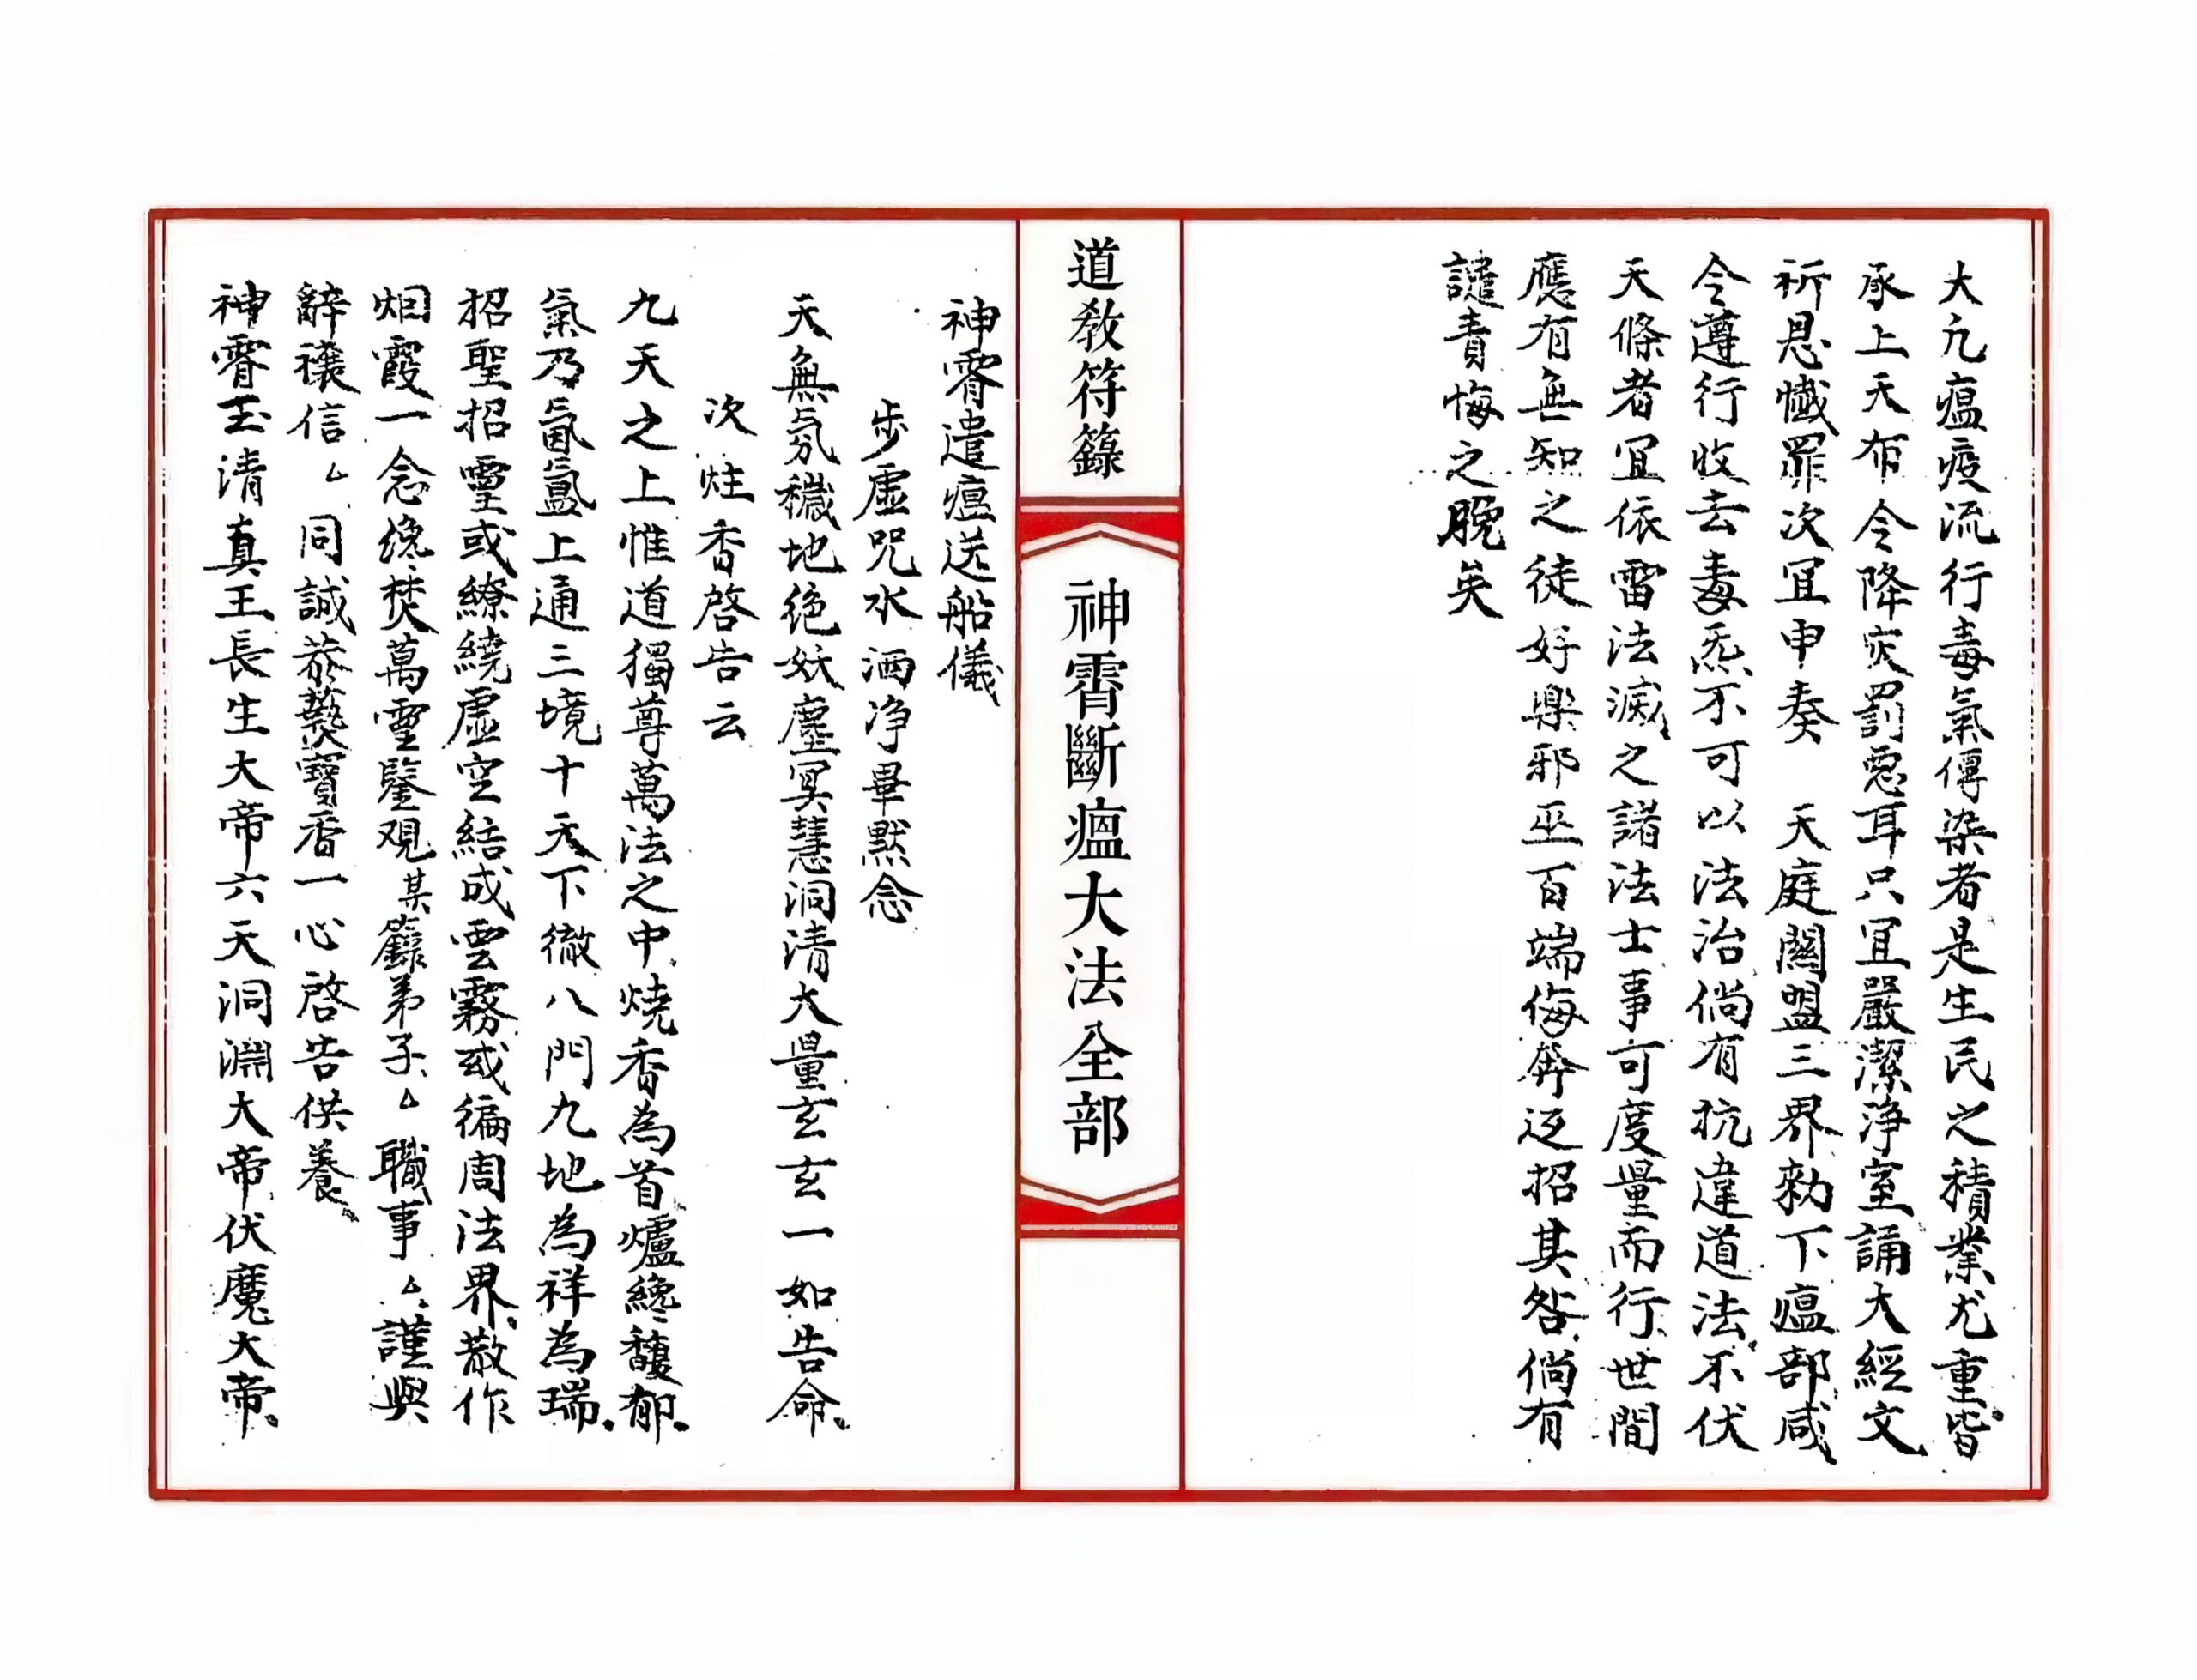 大凢瘟疫流行毒氣傳染者是生民之積業尤重皆
承上天布令降灾罰惡耳只宜嚴潔淨室誦大經文
祈恩懺罪次宜申奏　天庭關盟三界勑下瘟部咸
令遵行收去毒炁不可以法治倘有抗違道法不伏
天條者宜依雷法滅之諸法士事可度量而行世間
應有無知之徒好樂邪巫百端侮弄返招其咎倘有
譴責悔之晚矣
道教符籙
神霄斷瘟大法全部
神霄遣瘟送船儀
步虛咒水洒淨畢默念
天無氛穢地絕妖塵冥慧洞清大量玄玄一如告命
次炷香啓告云
九天之上惟道獨尊萬法之中燒香為首爐纔馥郁
氣乃氤氳上通三境十天下徹八門九地為祥為瑞
招聖招靈或繚繞虛空結成雲霧或徧周法界散作
烟霞一念纔焚萬靈鑒观某籙弟子△職事△謹與
辭禳信△同誠恭爇寶香一心啓告供養
神霄玉清真王長生大帝六天洞淵大帝伏魔大帝